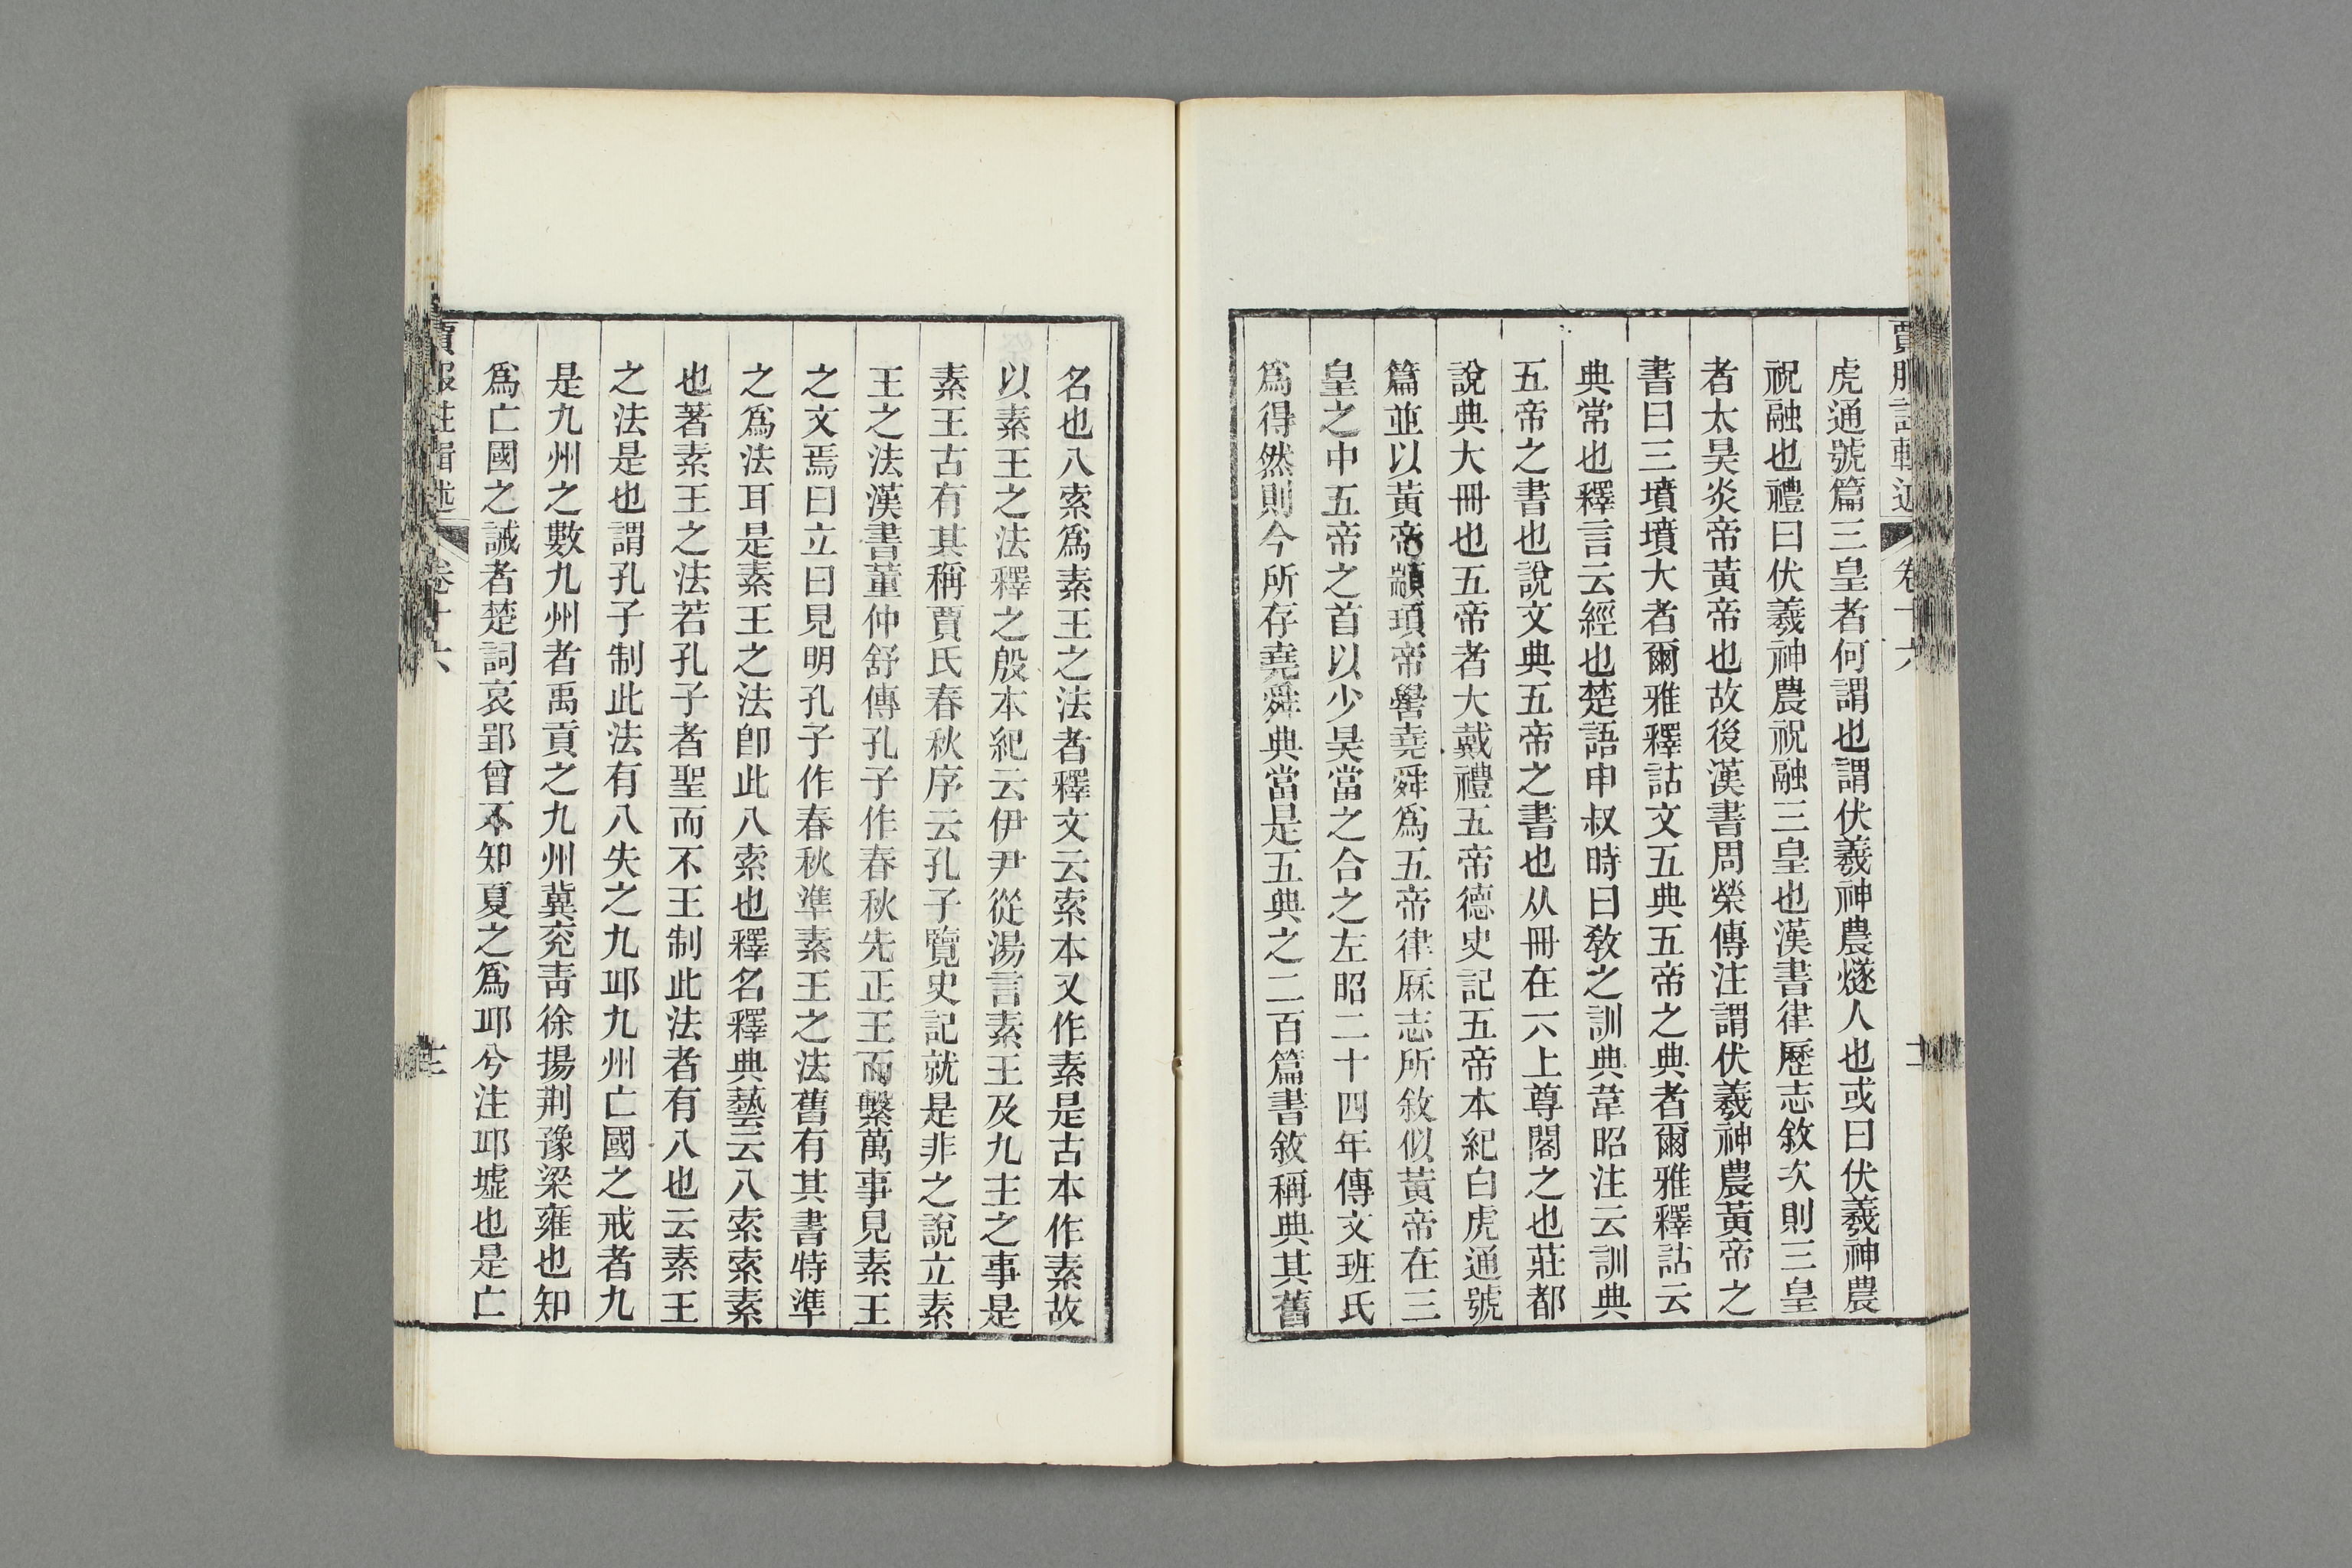 賈服注輯述 卷十六
虎通號篇三皇者何謂也謂伏羲神農燧人也或曰伏羲神農
祝融也禮曰伏羲神農祝融三皇也漢書律歷志敘次則三皇
者太昊炎帝黃帝也故後漢書周榮傳注謂伏羲神農黃帝之
書曰三墳墳大者爾雅釋詁文五典五帝之典者爾雅釋詁云
典常也釋言云經也楚語申叔時曰敎之訓典韋昭注云訓典
五帝之書也說文典五帝之書也从冊在六上尊閣之也莊都
說典大冊也五帝者大戴禮五帝德史記五帝本紀白虎通號
篇並以黃帝顓頊帝嚳堯舜爲五帝律厤志所敘似黃帝在三
皇之中五帝之首以少昊當之合之左昭二十四年傳文班氏
爲得然則今所存堯舜典當是五典之二百篇書敘稱典其舊
名也八索爲素王之法者釋文云索本又作素是古本作素故
以素王之法釋之殷本紀云伊尹從湯言素王及九主之事是
素王古有其稱賈氏春秋序云孔子覽史記就是非之說立素
王之法漢書董仲舒傳孔子作春秋先正王而繫萬事見素王
之文焉曰立曰見明孔子作春秋準素王之法舊有其書特準
之爲法耳是素王之法卽此八索也釋名釋典藝云八索索素
也著素王之法若孔子者聖而不王制此法者有八也云素王
之法是也謂孔子制此法有八失之九邱九州亡國之戒者九
是九州之數九州者禹貢之九州冀兖靑徐揚荆豫梁雍也知
爲亡國之誡者楚詞哀郢曾不知夏之爲邱兮注邱墟也是亡
賈服注輯述 卷十六